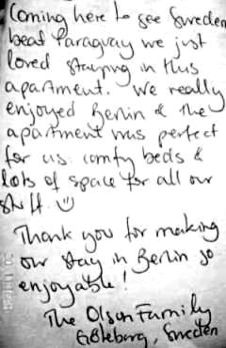 Coming here to see Sweden
beat Paraguay we just
loved staying in this
apartment. We really
enjoyed Berlin & the
apartment was perfect
for us. comfy beds &
lots of space for all our
stuff. ☺
Thank you for making
our stay in Berlin so
enjoyable!
The Olson Family
Göteborg, Sweden